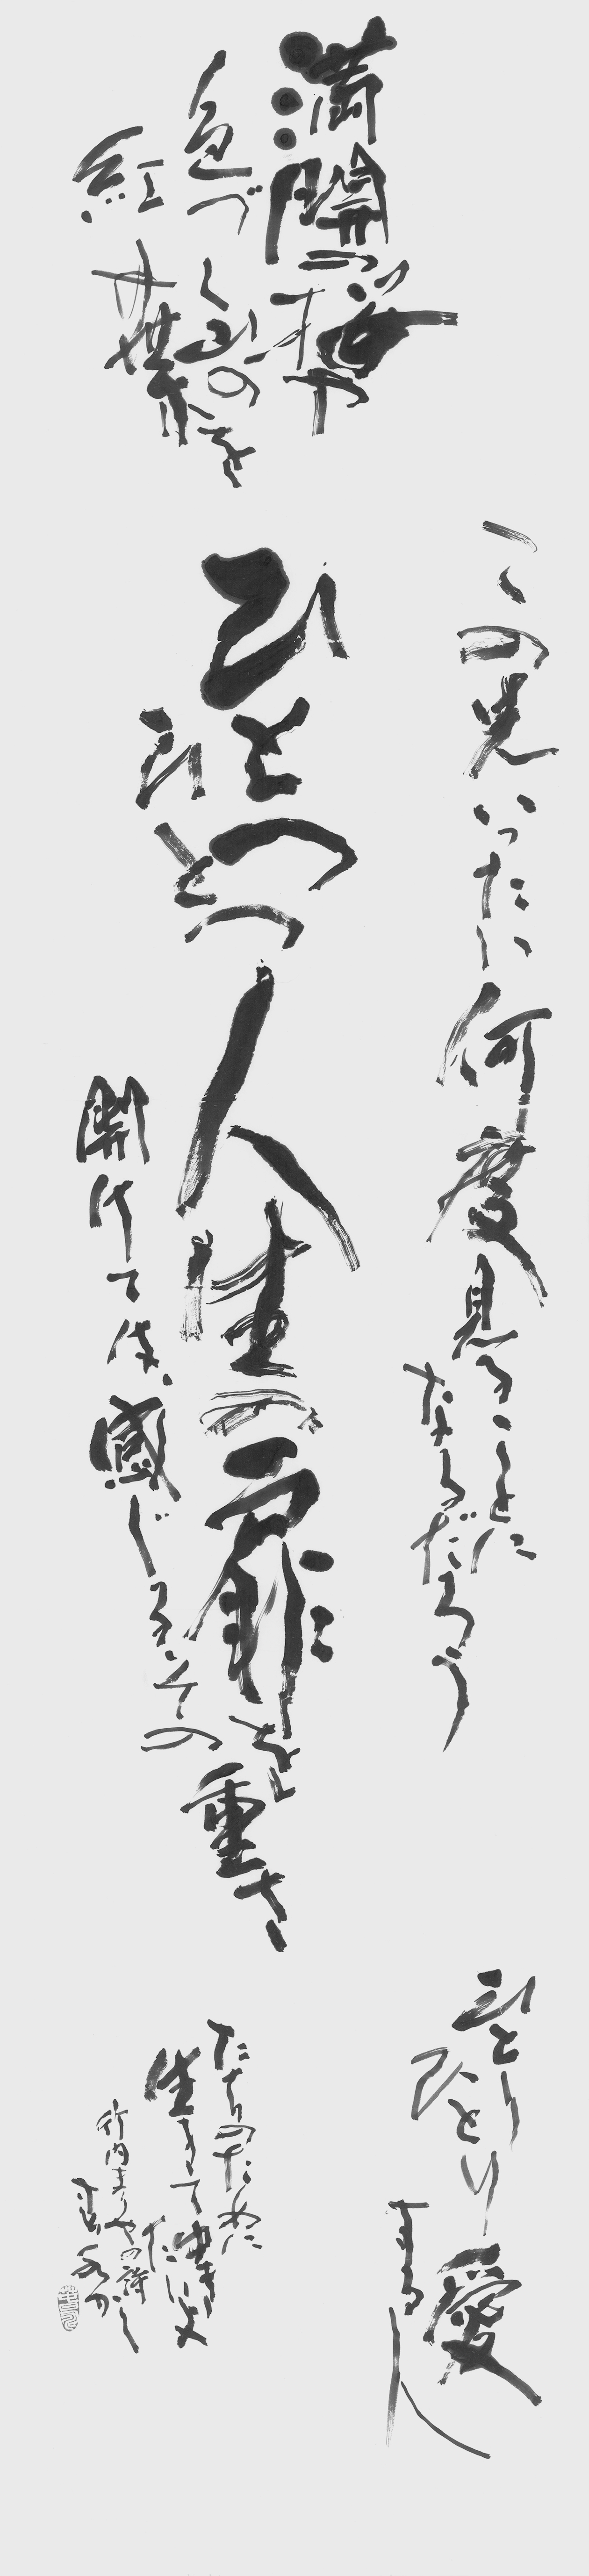 満開の桜や
色づく山の
紅葉を
この先いったい
何度見ることに
なるだろう
ひとつ
ひとつ
人生の扉を
開けては感じる
その重さ
ひとりひとり愛
する人
たちのために
生きて
ゆきたいよ
竹内まりやの詩